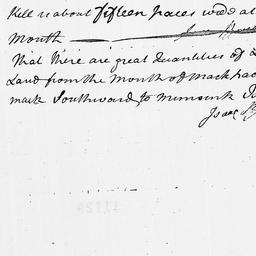 Kill is about Fifteen paces wide at
Month
That there are great Quantities of
Land from the Month of Mackhac
mack Southward to Minisink
Isaac